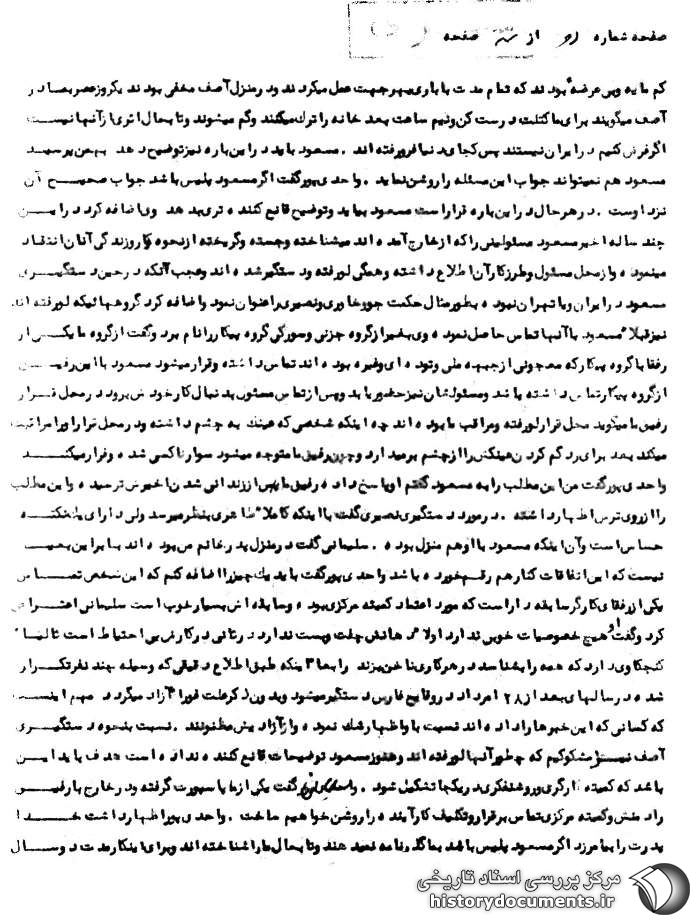 صفحه شماره از سه صفحه
کم مایه وبی عرضه بودند که تمام مدت با باری بهر جهت عمل میکردند ودرمنزل آصف مخفی بودند یکروز عصر بمادر
آصف میگویند برای ما کتلت درست کن ونیم ساعت بعد خانه را ترک میکنند وگم میشوند وتا بحال اثری از آنها نیست
اگر فرض کنیم در ایران نیستند پس کجای دنیا فرورفته اند . مسعود باید در این باره نیز توضیح دهد بهمن پرسید
مسعود هم نمیتواند جواب این مسئله را روشن نماید . واحدی پور گفت اگر مسعود پلیس باشد جواب صحیح آن
نزد اوست . در هر حال در این باره قرار است مسعود بیاید وتوضیح قانع کننده تری بدهد وی اضافه کرد در این
چند ساله اخیر مسعود مسئولینی را که از خارج آمده اند میشناخته وجسته وگریخته از نحوه کار وزندگی آنان انتقاد
مینموده واز محل مسئول وطرز کار آن اطلاع داشته وهمگی لو رفته ودستگیر شده اند وعجب آنکه در حین دستگیری
مسعود در ایران ویا تهران نبوده بطور مثال حکمت جو وخاوری ونصیری را عنوان نمود واضافه کرد گروههائیکه لو رفته اند
نیز قبلا مسعود با آنها تماس حاصل نموده وی بغیر از گروه جزنی وسورکی گروه پیکار را نام برد وگفت از گروه ما یکی از
رفقا با گروه پیکار که معجونی از جبهه ملی وتوده ای وغیره بوده اند تماس داشته وقرار میشود مسعود با این رفیق
از گروه پیکار تماس داشته باشد ومسئولشان نیز حضور یابد وپس از تماس مسئول بدنبال کار خود میرود در محل قرار
رفیق ما میگوید محل قرار لو رفته ومراقب ما بوده اند چه اینکه شخصی که عینک به چشم داشته ودر محل قرار او را مراقبت
میکند بعد برای رد گم کردن عینکش را از چشم برمیدارد وچون رفیق ما متوجه میشود سوار تاکسی شده وفرار میکند
واحدی پور گفت من این مطلب را به مسعود گفتم او پاسخ داده رفیق ما پس از زندانی شدن اخیرش ترسیده واین مطلب
را از روی ترس اظهار داشته . در مورد دستگیری نصیری گفت با اینکه کاملا ظاهری بنظر میرسد ولی دارای یک نکته
حساس است وآن اینکه مسعود با او هم منزل بوده . سلیمانی گفت در منزل پدر خانم من بوده اند بنابراین بعید
نیست که این اتفاقات کنار هم رقم خورده باشد واحدی پور گفت باید یک چیز را اضافه کنم که این شخص تماس
یکی از رفقای کارگر سابقه دار است که مورد اعتماد کمیته مرکزی بوده وسابقه اش بسیار خوب است سلیمانی اعتراض
کرد وگفت او هیچ خصوصیات خوبی ندارد اولا دهانش چفت وبست ندارد در ثانی در کار حزبی بی احتیاط است ثالثا
کنجکاوی دارد که همه را بشناسد در هر کاری ناخن بزند رابعا اینکه طبق اطلاع دقیقی که وسیله چند نفر تکرار
شده در سالهای بعد از ۲۸ امرداد در وقایع فارس دستگیر میشود وبدون ذکر علت فورا آزاد میگردد مهم اینست
که کسانی که این خبرها را داده اند نسبت با و اظهار شک نموده واز آزادیش مظنونند . نسبت بنحوه دستگیری
آصف نیز مشکوکیم که چطور آنها لو رفته اند وهنوز مسعود توضیحات قانع کننده نداده است هدف باید این
باشد که کمیته کارگری وروشنفکری در یکجا تشکیل شود . گفت یکی از ما پاسپورت گرفته ودر خارج با رفیق
رادمنش وکمیته مرکزی تماس برقرار وتکلیف کار آینده را روشن خواهیم ساخت . واحدی پور اظهار داشت خدا
پدرت را بیامرزد اگر مسعود پلیس باشد بما گذرنامه نمیدهند وتا بحال ما را شناخته اند وبرای اینکار مدت دو سال
مرکز بررسی اسناد تاریخی
historydocuments.ir